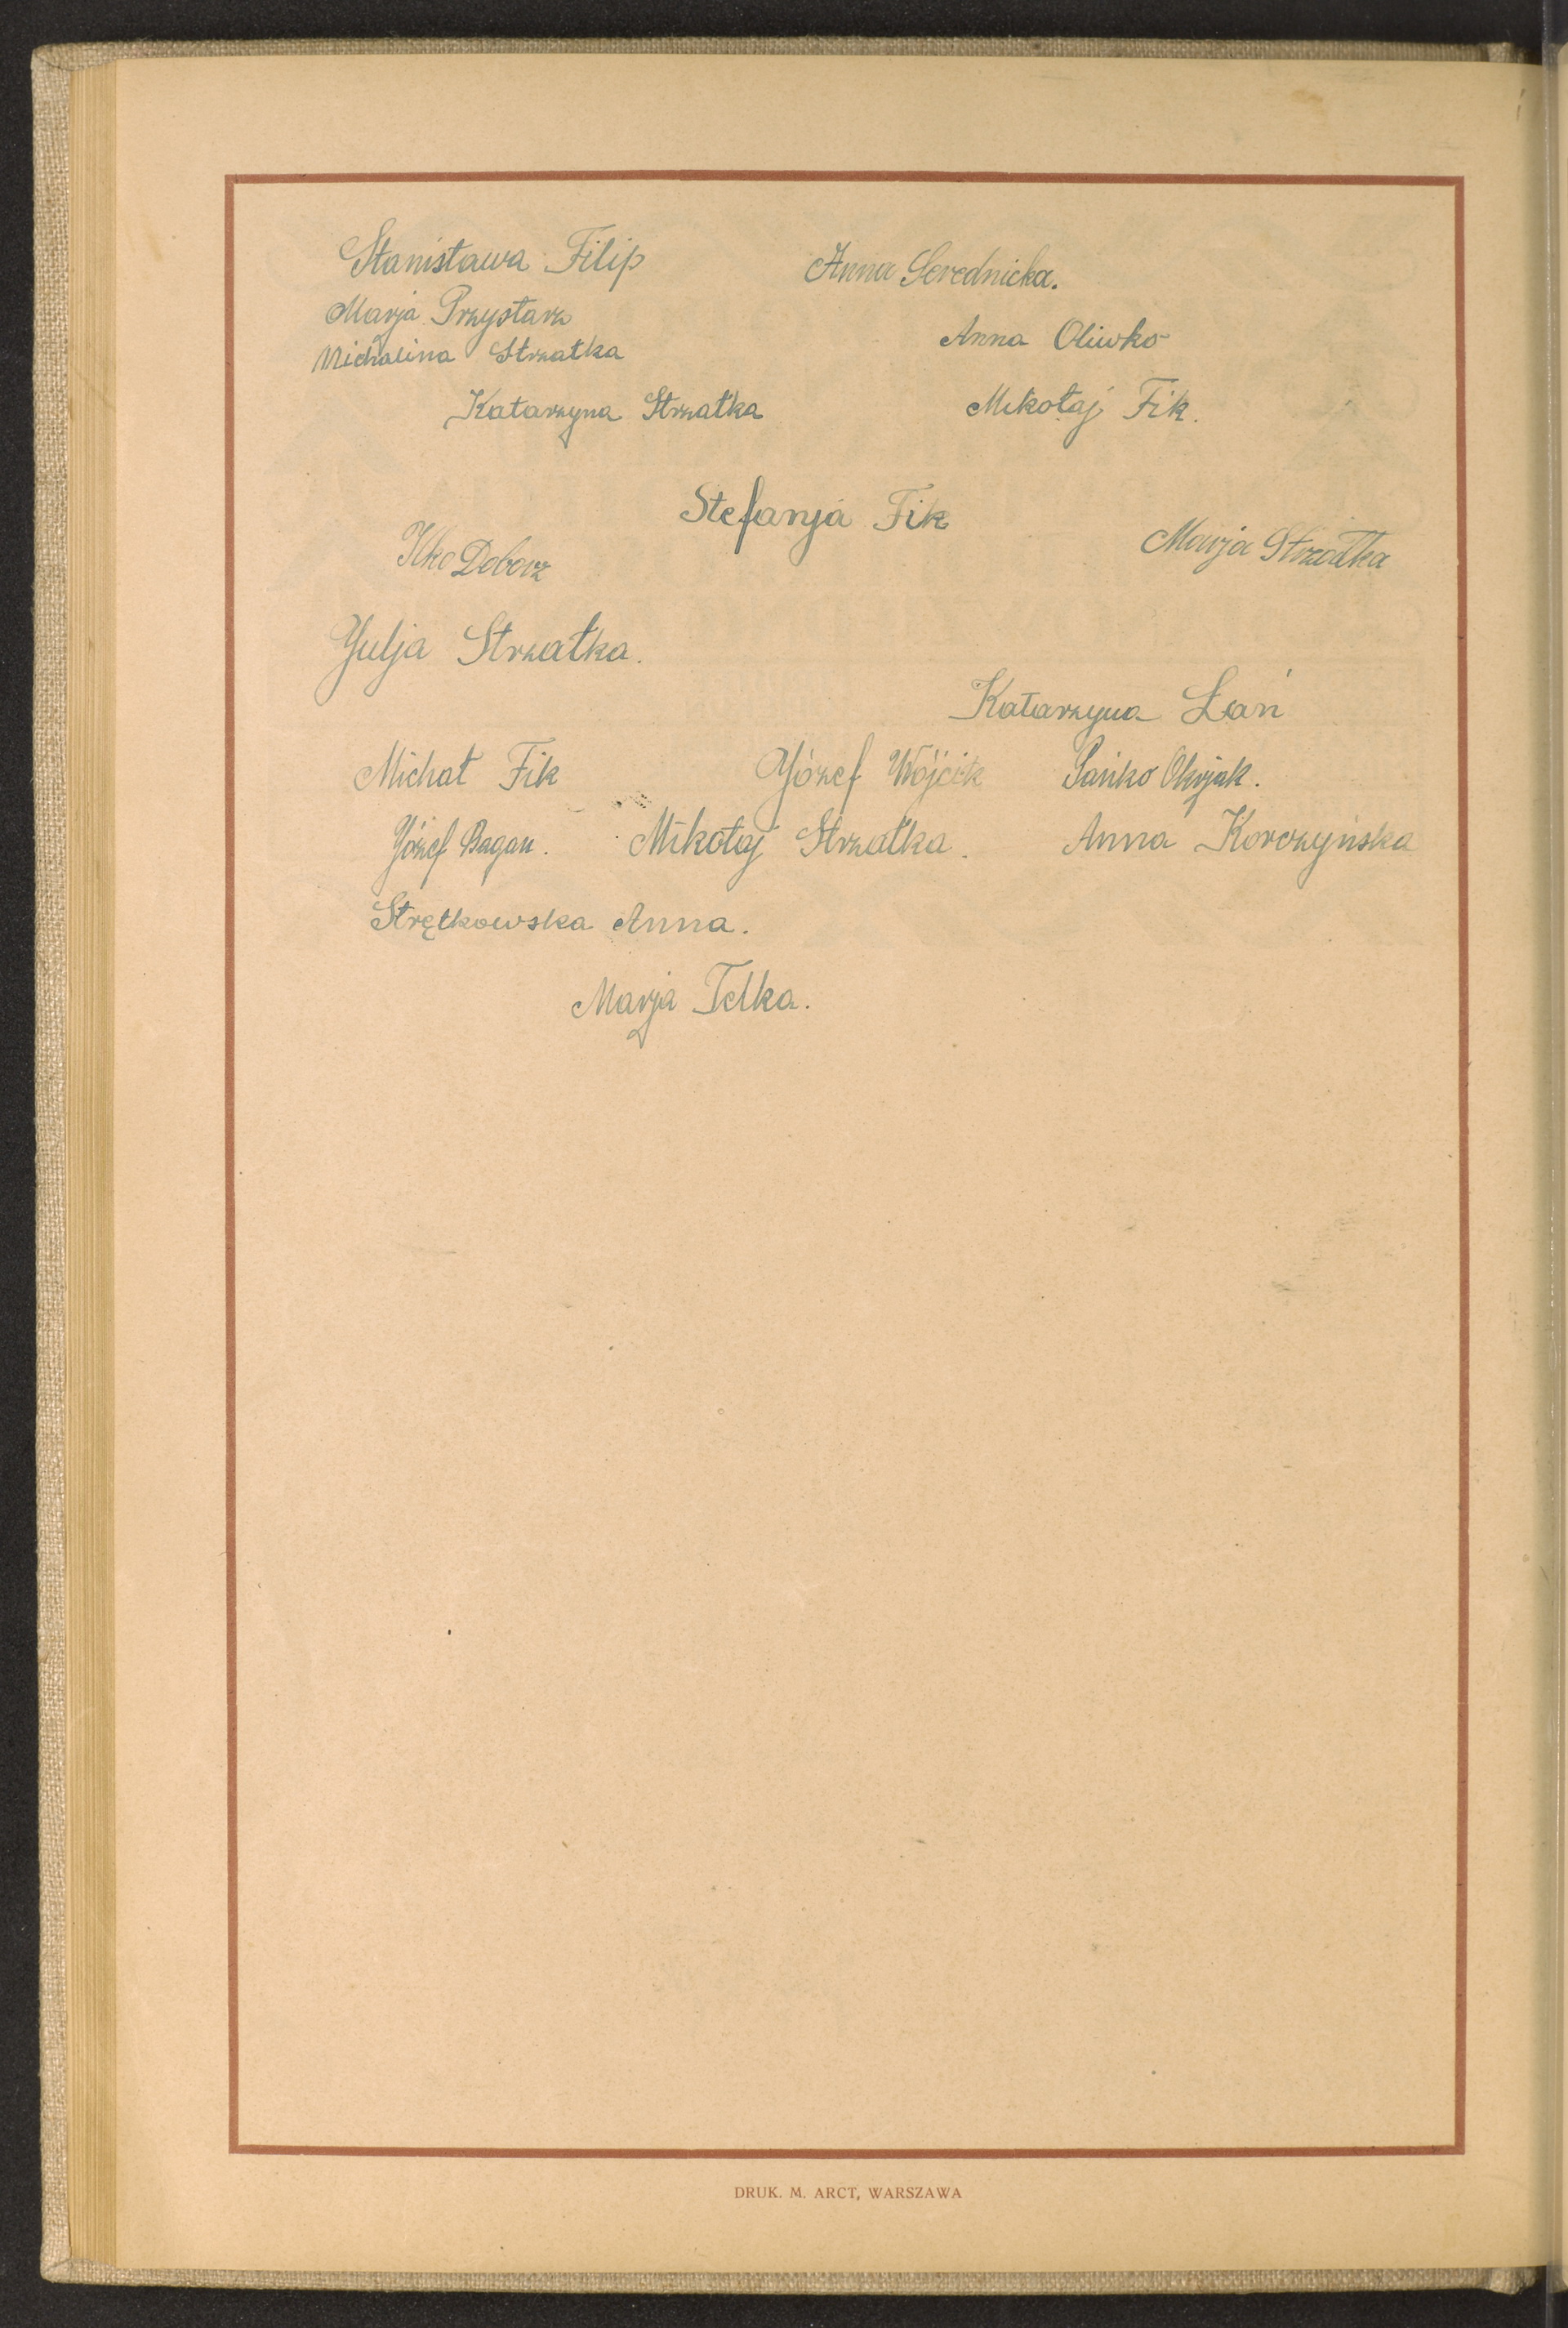 Stanisława Filip Anna Serednicka.
Marja Przystarz
Michalina Strzałka Anna Oliwko
Katarzyna Strzałka Mikołaj Fik.
Stefanja Fik
Ilko Doborz Marja Strzałka
Julja Strzałka.
Katarzyna Łań
Michał Fik Józef Wójcik Pańko
Józef Bagan. Mikołaj Strzałka. Anna Korczyńska
Strętkowska Anna.
Marja Telka.
DRUK. M. ARCT, WARSZAWA